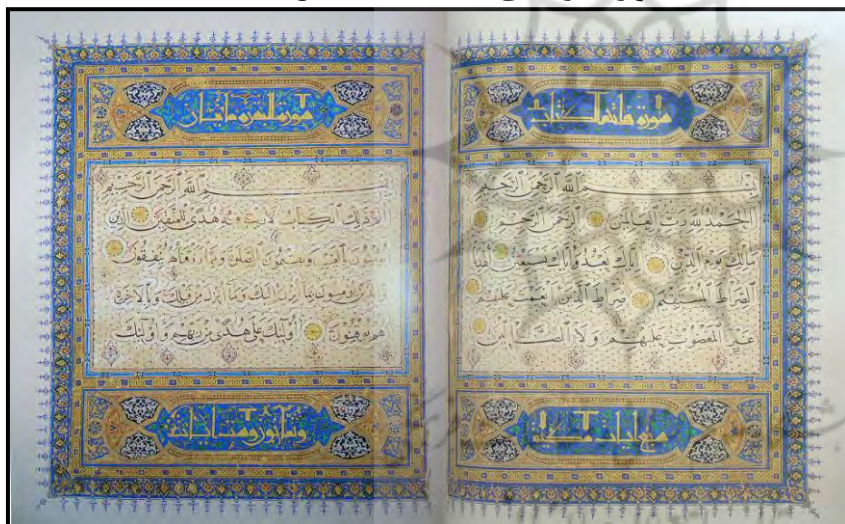 سورة فاتحة الكتاب
بسم الله الرحمن الرحيم
الحمد لله رب العالمين الرحمن الرحيم
مالك يوم الدين اياك نعبد واياك نستعين اهدنا
الصراط المستقيم صراط الذين انعمت عليهم
غير المغضوب عليهم ولا الضالين
سبع ايات مكية
سورة البقرة مائتان
بسم الله الرحمن الرحيم
الم ذلك الكتاب لا ريب فيه هدى للمتقين الذين
يؤمنون بالغيب ويقيمون الصلوة ومما رزقناهم ينفقون
والذين يؤمنون بما انزل اليك وما انزل من قبلك وبالاخرة
هم يوقنون اولئك على هدى من ربهم واولئك
وثمانون وست ايات